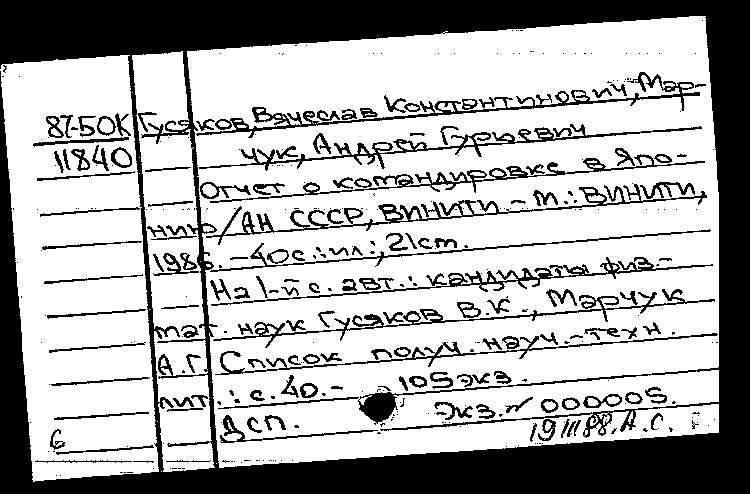 87-50К Гусяков, Вячеслав Константинович, Мар-
11840 чук, Андрей Гурьевич
Отчет о командировке в Япо-
нию / АН СССР, ВИНИТИ. - М.: ВИНИТИ,
1986. - 40с.: ил.; 21 cm.
На 1-й с. авт.: кандидаты физ.-
мат. наук Гусяков В.К., Марчук
А.Г. Список получ. науч.-техн.
лит.: с. 40. - 105 экз.
Дсп. Экз. № 000005.
6 19 III 88. А.С.